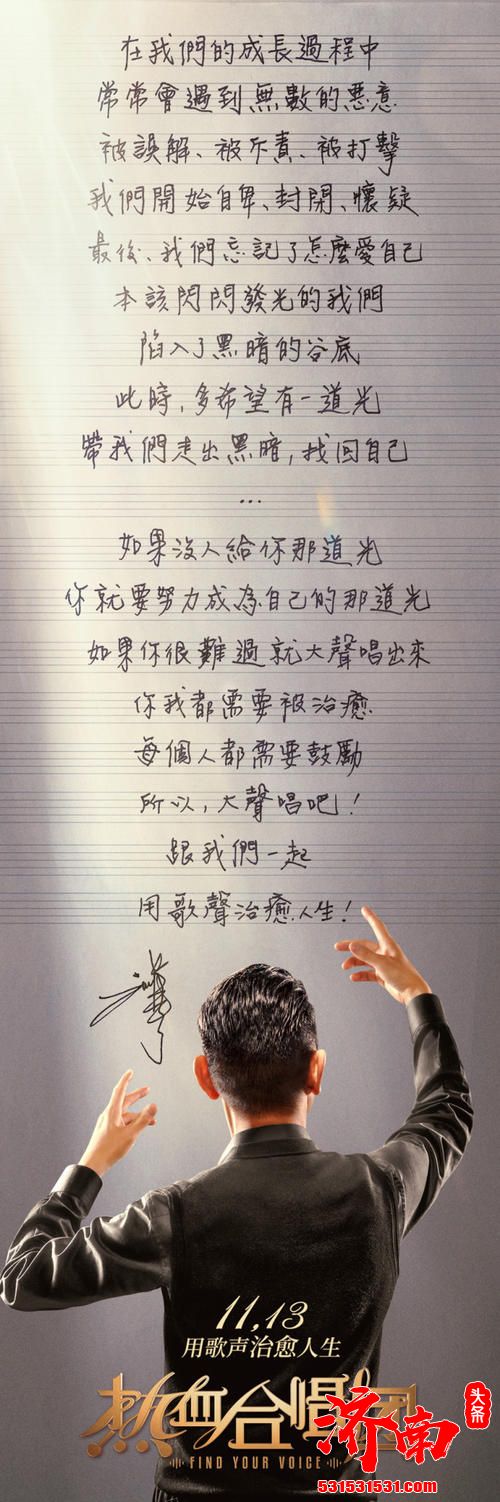 在我們的成長過程中
常常會遇到無數的惡意
被誤解、被斥責、被打擊
我們開始自卑、封閉、懷疑
最後、我們忘記了怎麼愛自己
本該閃閃發光的我們
陷入了黑暗的谷底
此時，多希望有一道光
帶我們走出黑暗，找回自己
...
如果沒人給你那道光
你就要努力成為自己的那道光
如果你很難過就大聲唱出來
你我都需要被治癒
每個人都需要鼓勵
所以，大聲唱吧！
跟我們一起
用歌聲治癒人生！
11,13
用歌声治愈人生
热血合唱团
FIND YOUR VOICE
济南
头条
531531531.com